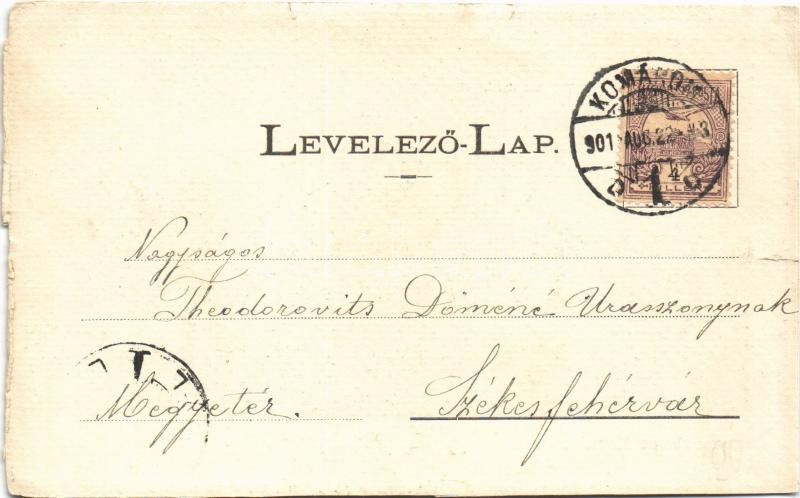 KOMÁROM
901 AUG. 22
4
LEVELEZŐ-LAP.
Nagyságos
Theodorovits Döméné Urasszonynak
Megyetér.
Székesfehérvár